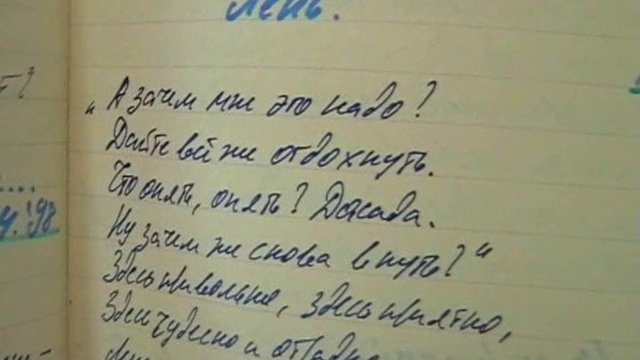 Лень.
„А зачем мне это надо?
Дайте всё же отдохнуть.
Что опять, опять? Досада.
Ну зачем же снова в путь?"
Здесь привольно, здесь приятно,
Здесь чудесно и отрадно
'98